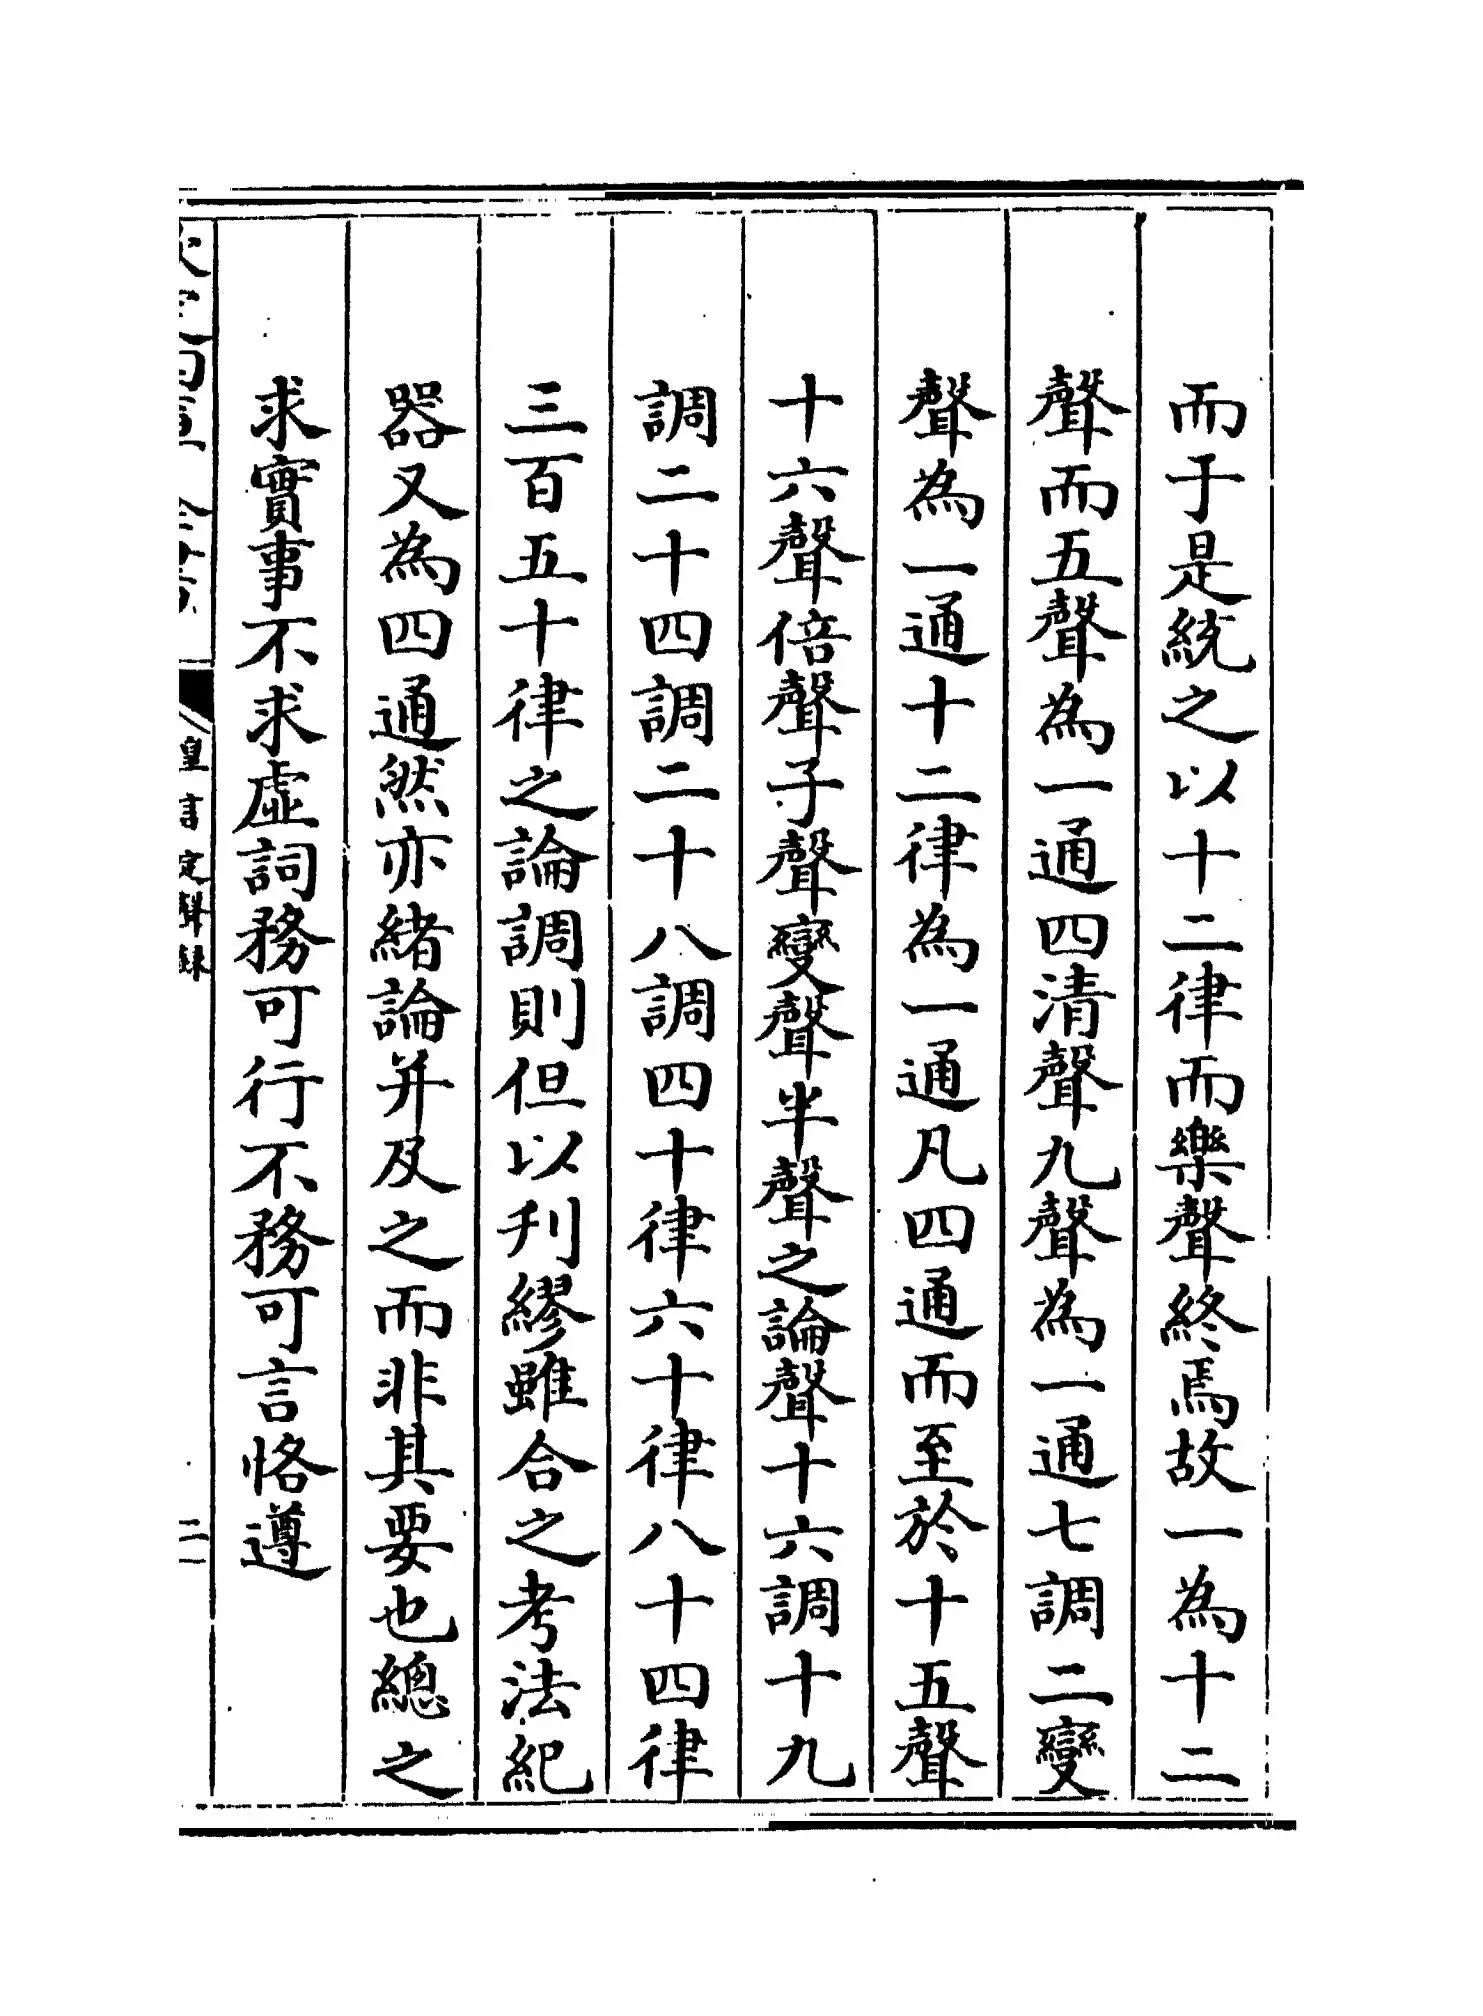 而于是統之以十二律而樂聲終焉故一為十二
聲而五聲為一通四清聲九聲為一通七調二變
聲為一通十二律為一通凡四通而至於十五聲
十六聲倍聲子聲變聲半聲之論聲十六調十九
調二十四調二十八調四十律六十律八十四律
三百五十律之論調則但以刋繆雖合之考法紀
器又為四通然亦緒論并及之而非其要也總之
求實事不求虛詞務可行不務可言恪遵
欽定四庫全書
皇言定聲録
二